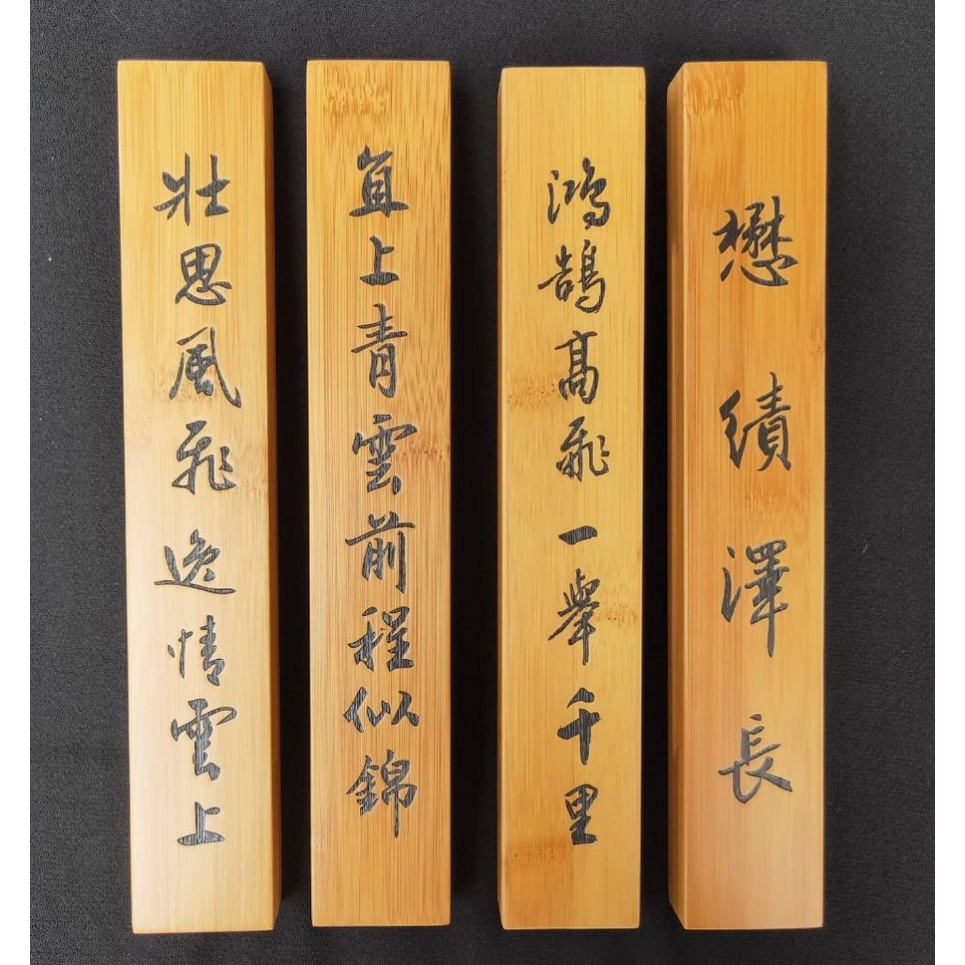 懋績澤長
鴻鵠高飛一舉千里
直上青雲前程似錦
壯思風飛逸情雲上